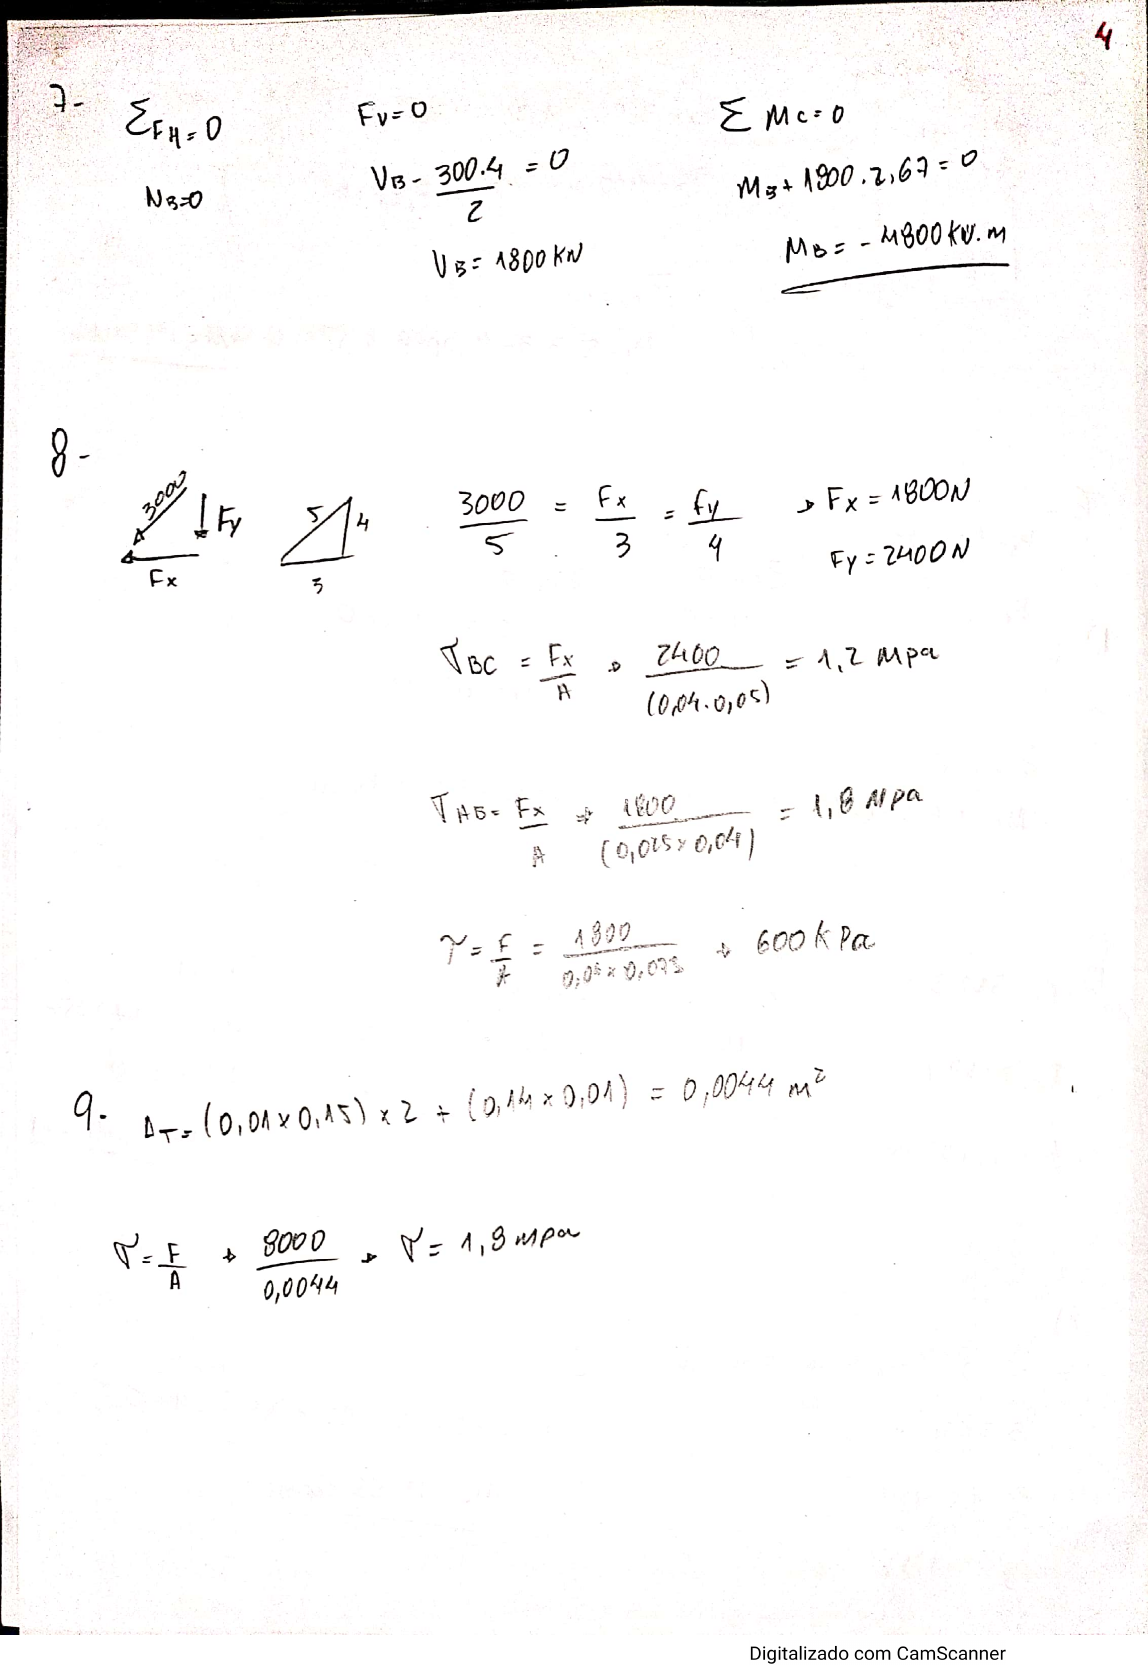 4
7- ΣFH=0 Fv=0 Σ Mc=0
NB=0 VB - 300.4/2 = 0 MB + 1800.2,67=0
VB = 1800 KN MB = - 4800 KN.m
8-
3000 Fy Fx 5 4 3 3000/5 = Fx/3 = fy/4 → Fx = 1800N
Fy = 2400N
σBC = Fx/A → 2400/(0,04.0,05) = 1,2 Mpa
σAB = Fx/A → 1800/(0,025x0,04) = 1,8 Mpa
τ = F/A = 1800/ → 600 k Pa
9. AT = (0,01 x 0,15) x 2 + (0,14 x 0,01) = 0,0044 m²
σ = F/A → 8000/0,0044 → σ = 1,8 mpa
Digitalizado com CamScanner